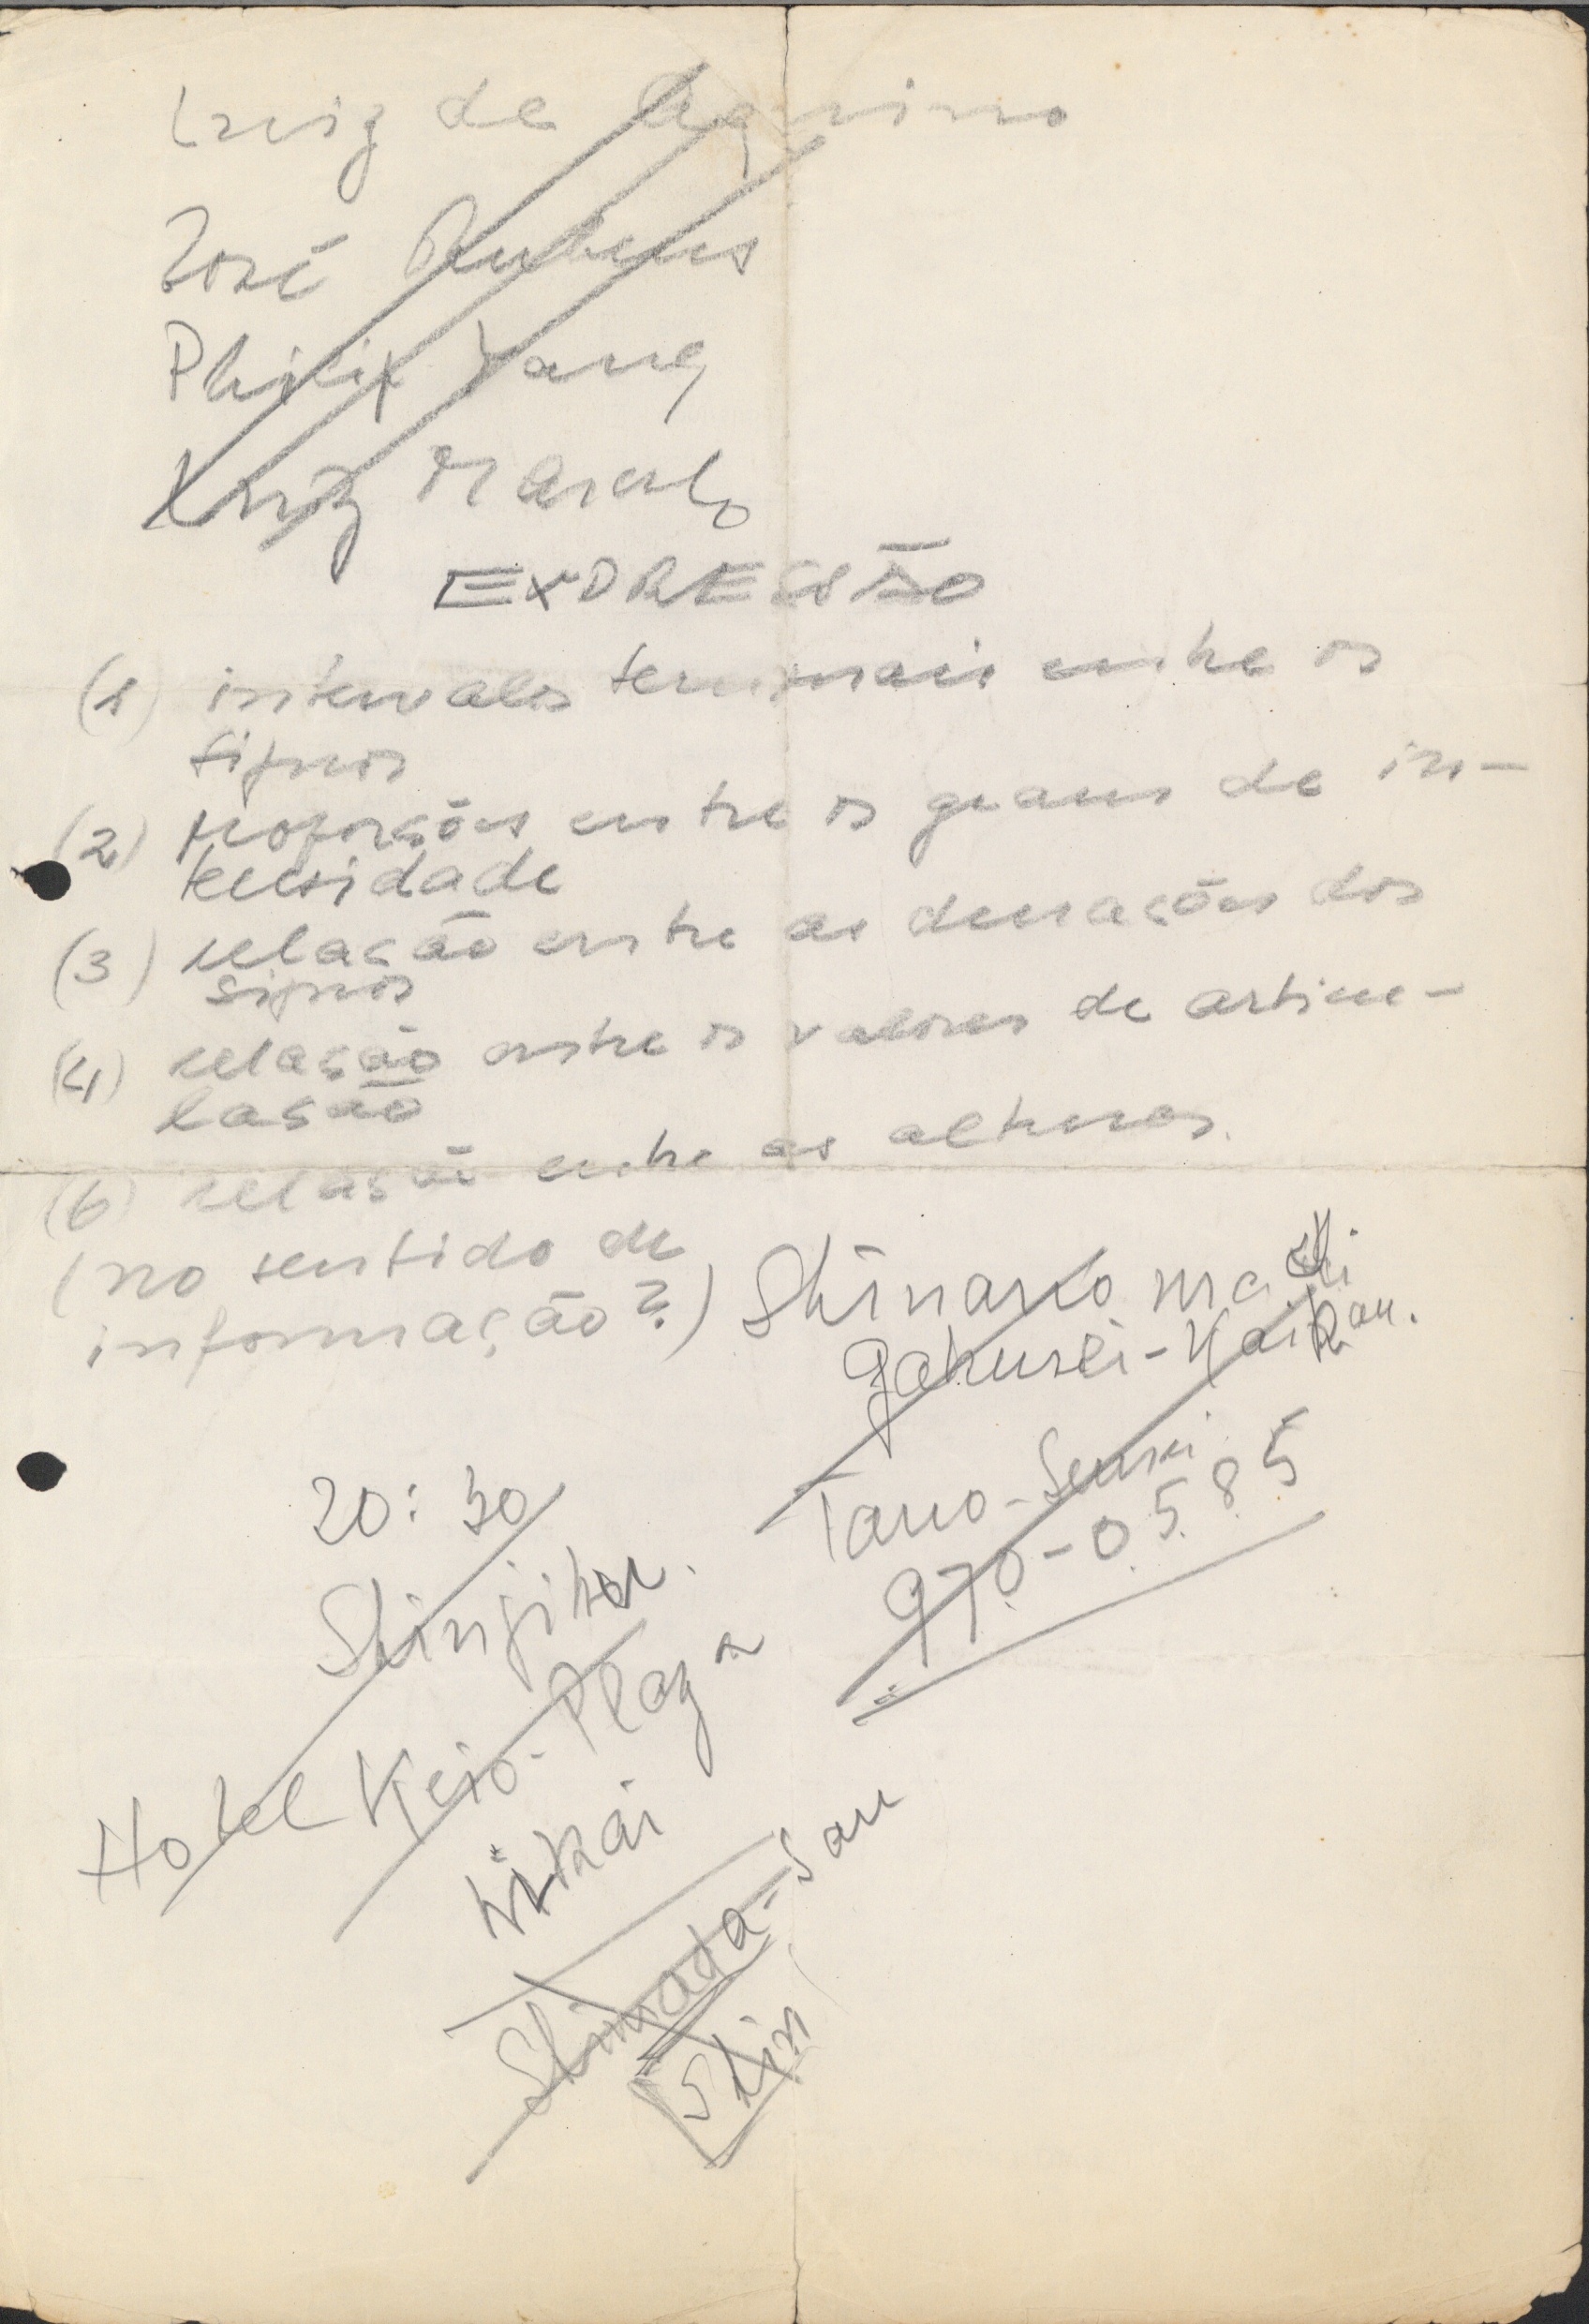 Luiz de Aquino
José Rubens
Philip Yang
Luiz Marcelo
EXPRESSÃO
(1) intervalos terminais entre os
signos
(2) proporções entre os graus de in-
tensidade
(3) relação entre as durações dos
signos
(4) relação entre os valores de articu-
lação
(6) relação entre as alturas.
(no sentido de
informação?)
Shinanomachi
Gakusei-Kaikan.
Tano-Sensei
970-0585
20:30
Shinjiku.
Hotel Keio-Plaza
nikai
Shimada-San
Shin